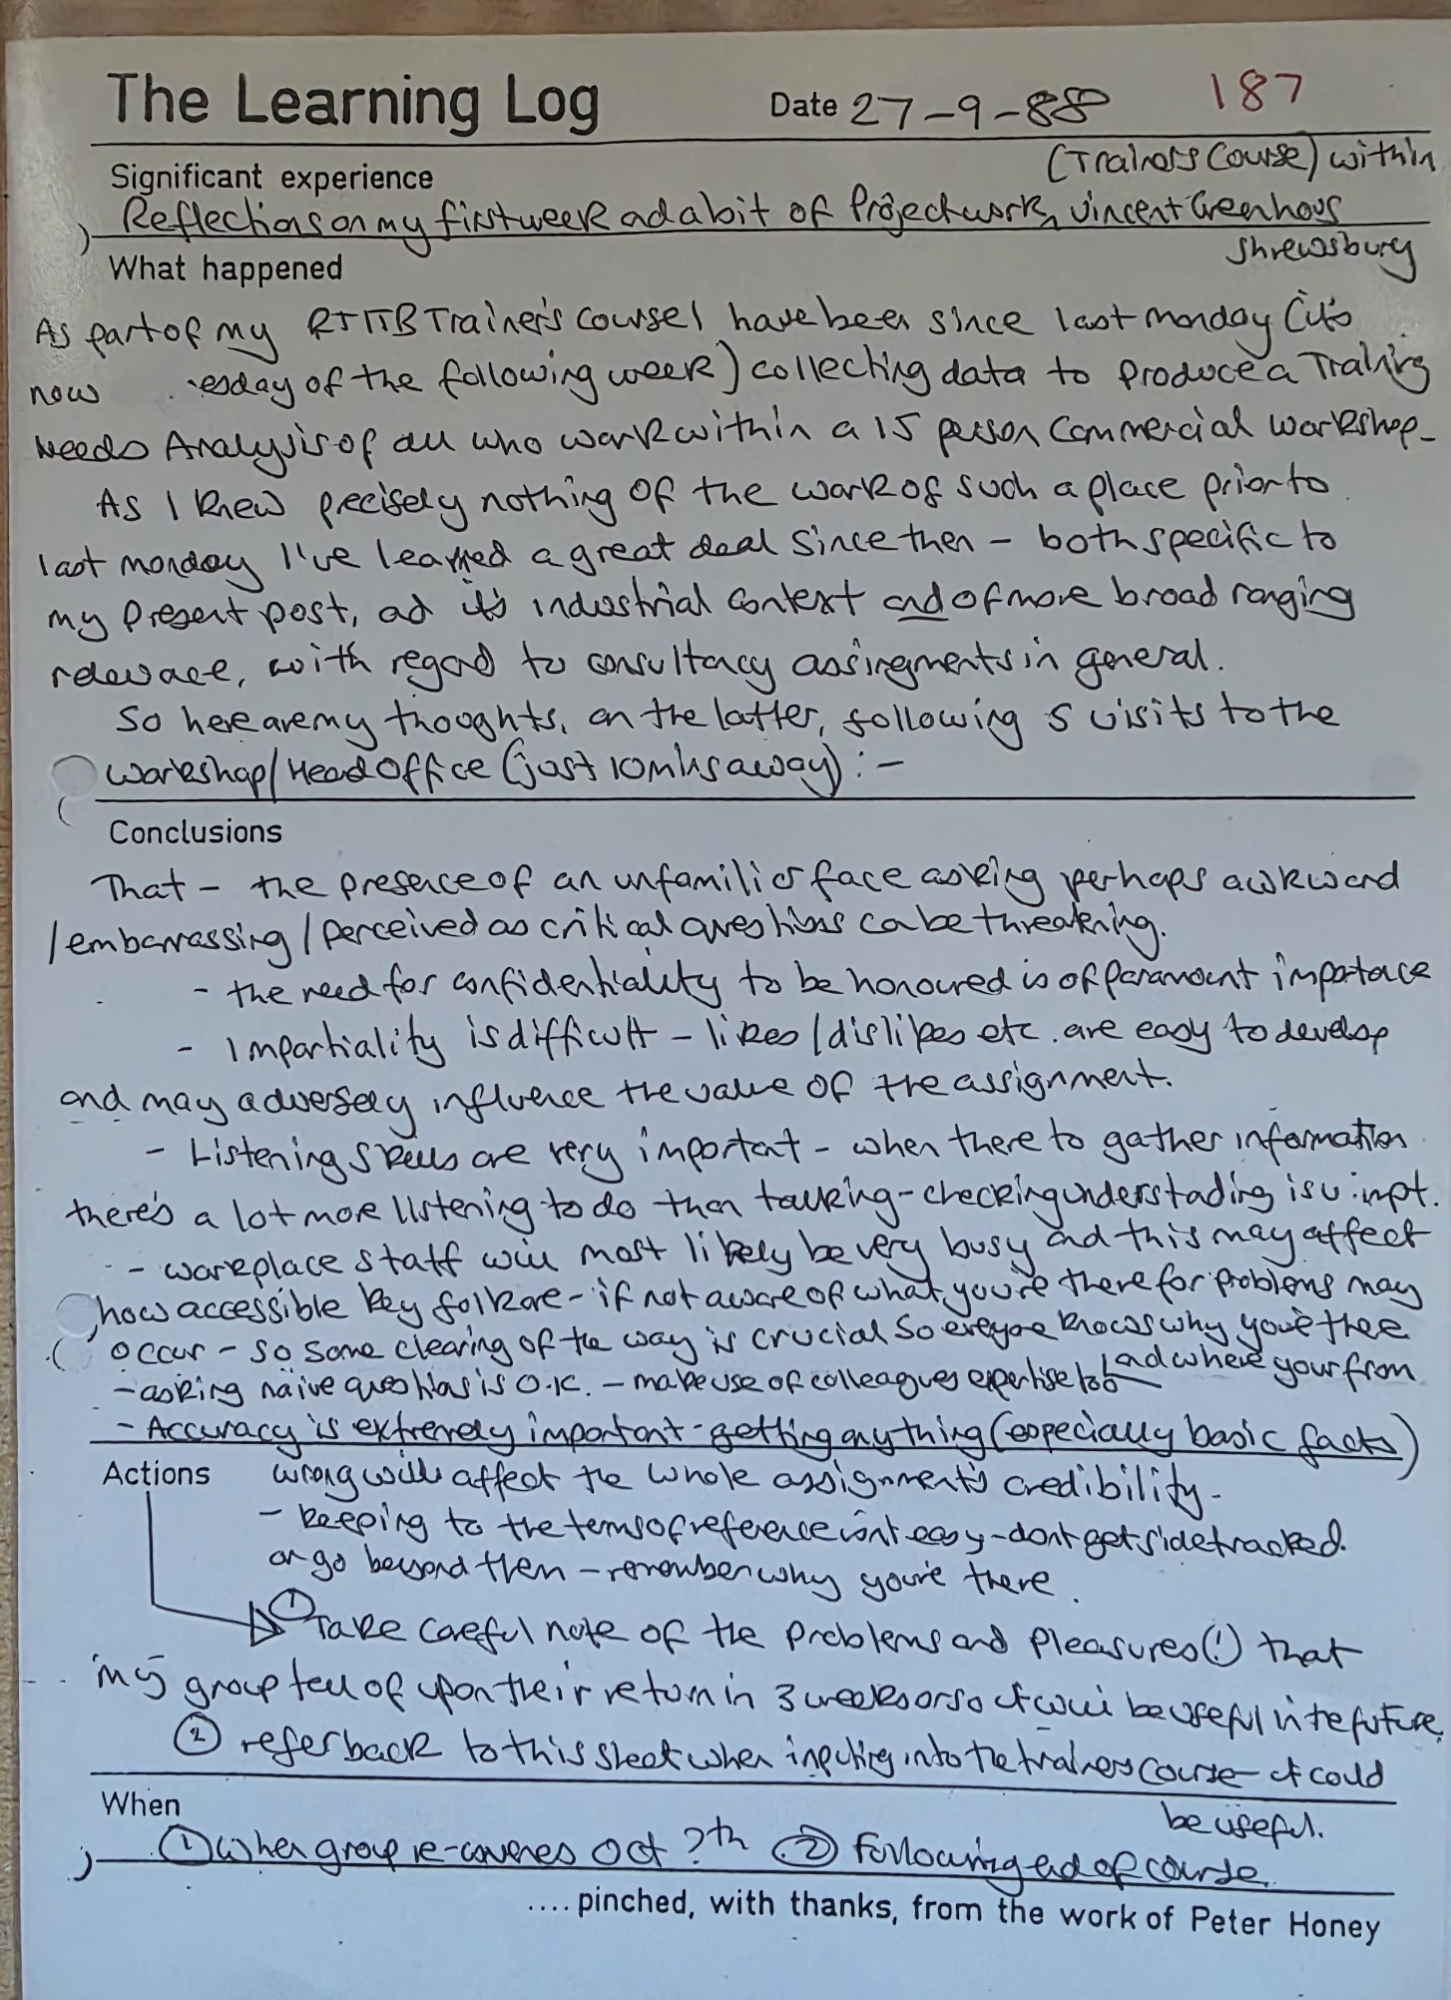 The Learning Log Date 27-9-88 187
Significant experience (Trainers Course) within
Reflections on my first week ad a bit of Project work, Vincent Greenhous
Shrewsbury
What happened
As part of my RTITB Trainer's course I have been since last monday (it's
now esday of the following week) collecting data to produce a Training
Needs Analysis of all who work within a 15 person Commercial Workshop-
As I knew precisely nothing of the work of such a place prior to
last monday I've learned a great deal since then - both specific to
my present post, ad it's industrial context and of more broad ranging
relevace, with regard to consultancy assignments in general.
So here are my thoughts, on the latter, following 5 visits to the
Workshop/Head Office (just 10 mins away) :-
Conclusions
That - the presence of an unfamiliar face asking perhaps awkward
/embarrassing/perceived as critical questions ca be threatening.
- the need for confidentiality to be honoured is of paramount importace
- Impartiality is difficult - likes/dislikes etc. are easy to develop
and may adversely influence the value of the assignment.
- Listening skills are very important - when there to gather information
there's a lot more listening to do than talking - checking understading is v. impt.
- workplace staff will most likely be very busy ad this may affect
how accessible key folk are - if not aware of what you're there for problems may
occur - so some clearing of the way is crucial so everyone knows why you're there
and where your from
- asking naive questions is O.K. - make use of colleagues expertise too!
- Accuracy is extremely important - getting anything (especially basic facts)
Actions wrong will affect the whole assignment's credibility-
- keeping to the terms of reference isn't easy - dont get sidetracked.
or go beyond them - remember why you're there.
① Take careful note of the problems and pleasures (!) that
my group tell of upon their return in 3 weeks or so it will be useful in te future.
② refer back to this sheet when inputing into the trainers course - it could
be useful.
When
① When group re-convenes Oct ?th ② Following ed of course.
.... pinched, with thanks, from the work of Peter Honey